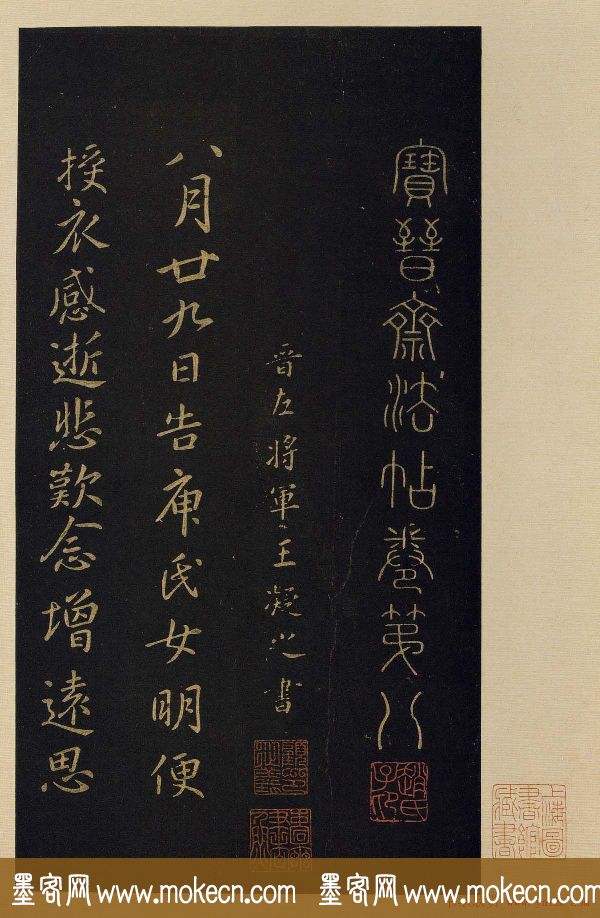 寶晉齋法帖卷第八
晉左將軍王凝之書
八月廿九日告庾氏女明便
授衣感逝悲歎念增遠思
趙氏子印
上海圖書館藏書
墨客网www.mokecn.com 墨客网www.mokecn.com